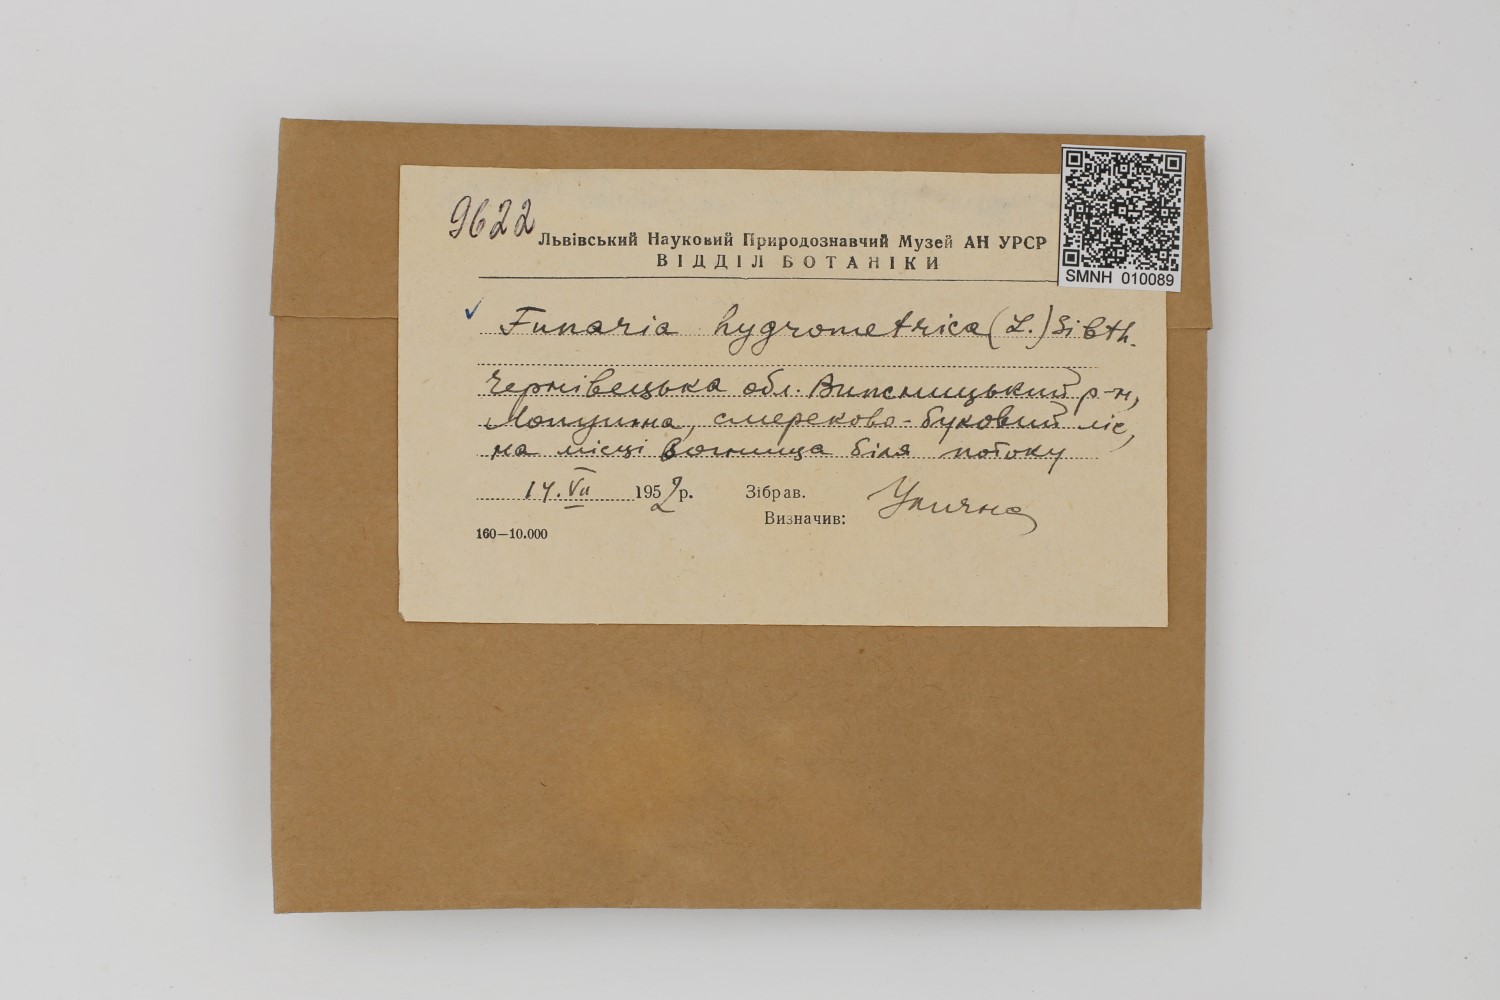 9622
Львівський Науковий Природознавчий Музей АН УРСР
ВІДДІЛ БОТАНІКИ
SMNH 010089
✓ Funaria hygrometrica (L.) Sibth.
Чернівецька обл. Вижницький р-н,
Лопушна, смереково-буковий ліс,
на місці вогнища біля потоку
14.VII 1952 р. Зібрав.
Визначив: Улична
160—10.000